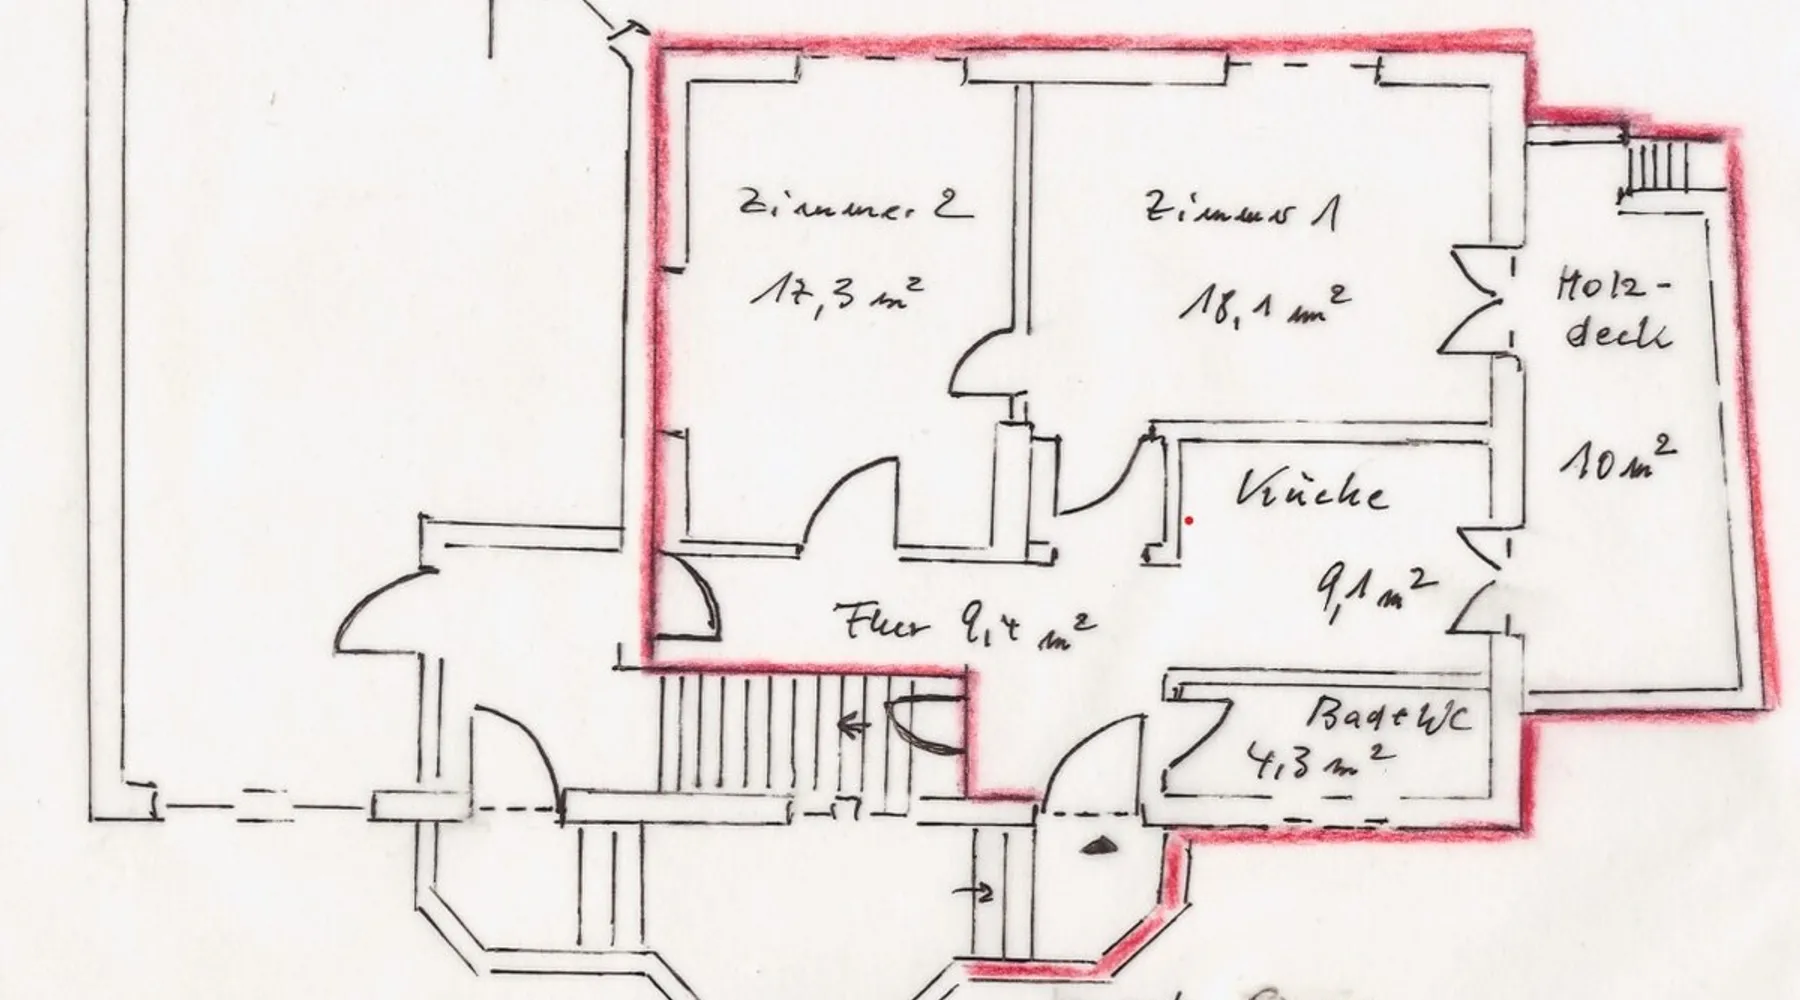 Zimmer 2
17,3 m²
Zimmer 1
18,1 m²
Holz-
deck
10 m²
Küche
9,1 m²
Flur 9,4 m²
Bad+WC
4,3 m²